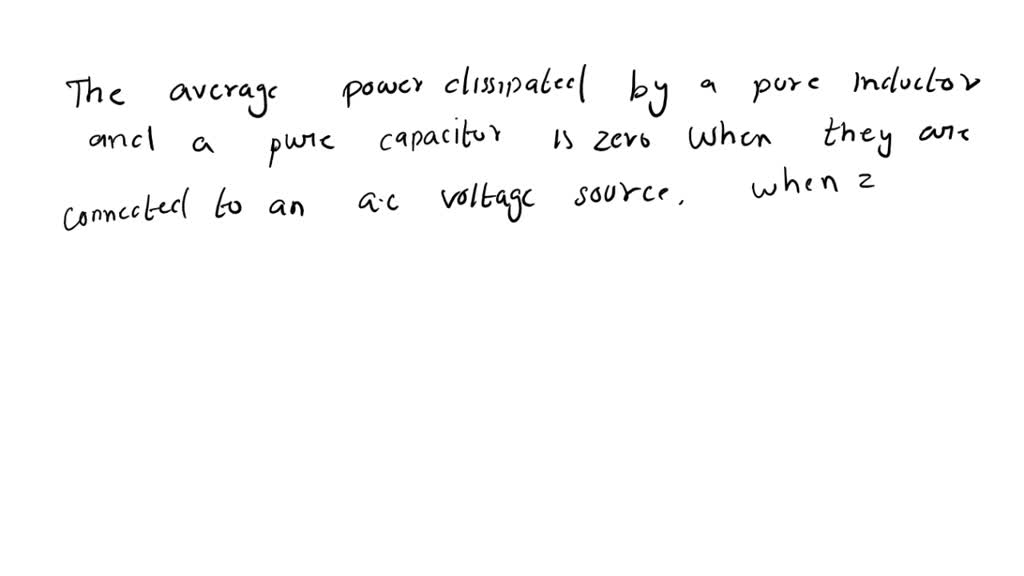 The average power dissipated by a pure inductor
and a pure capacitor is zero when they are
connected to an a.c voltage source. when z